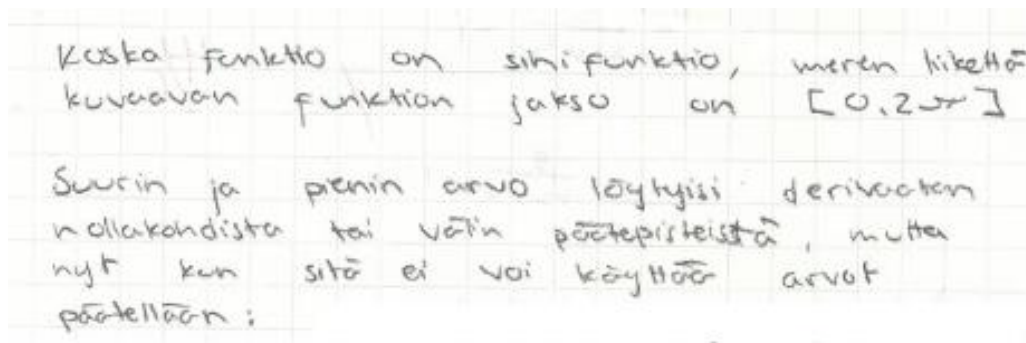 Koska funktio on sinifunktio, meren liikettä
kuvaavan funktion jakso on [0,2π]
Suurin ja pienin arvo löytyisi derivaatan
nollakohdista tai välin päätepisteistä, mutta
nyt kun sitä ei voi käyttää arvot
päätellään: